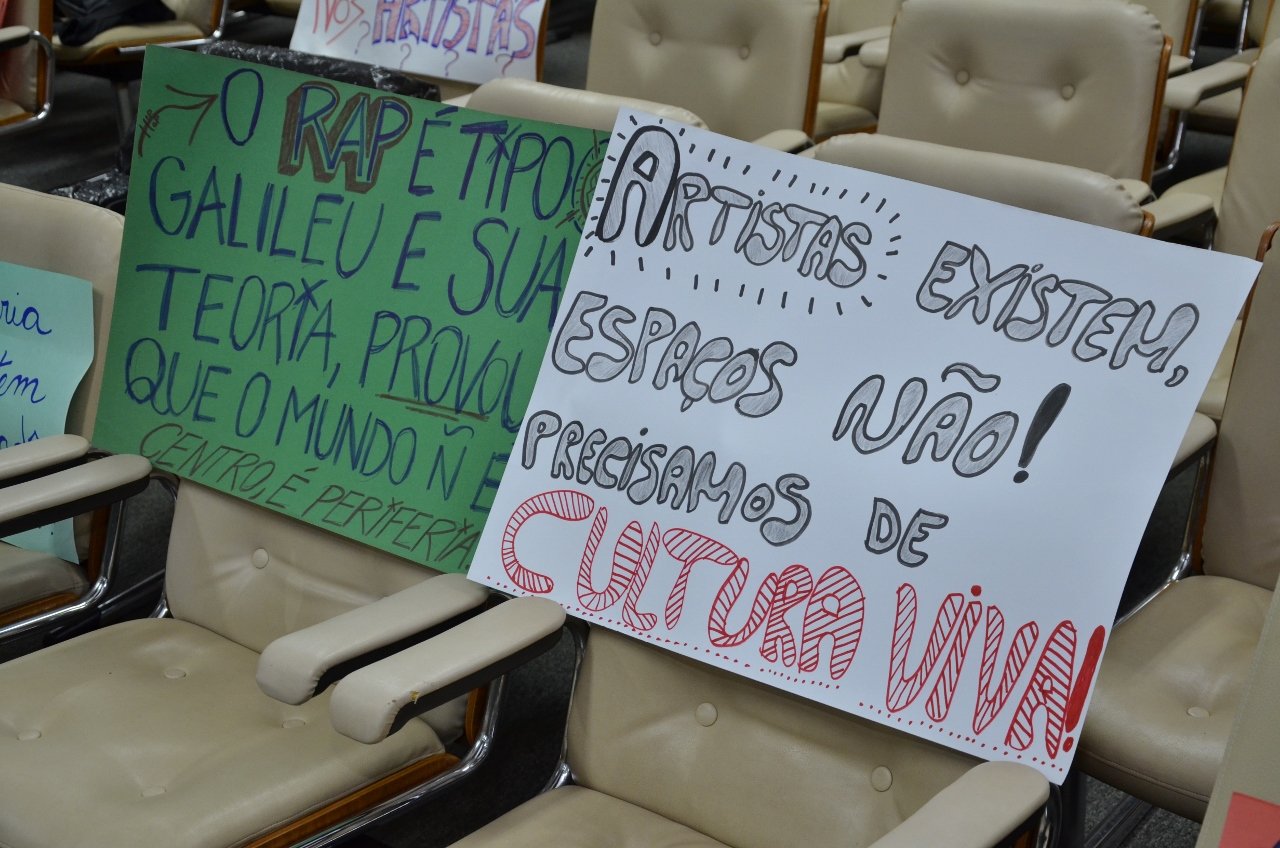 NOS ARTISTAS
O RAP É TIPO
GALILEU E SUA
TEORIA, PROVOU
QUE O MUNDO Ñ E
CENTRO, É PERIFERIA
ARTISTAS EXISTEM,
ESPAÇOS NÃO!
PRECISAMOS DE
CULTURA VIVA!
ria
tem